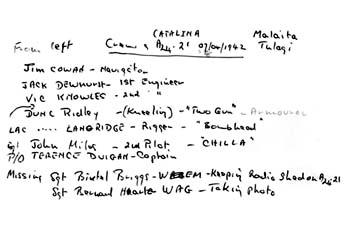 CATALINA Malaita
From left Crew of A24.21 07/04/1942 Tulagi
Jim COWAN - Navigator
JACK DEWHURST - 1st Engineer
VIC KNOWLES - 2nd "
DUNC Ridley - (Kneeling) - "Two Gun" - Armourer
LAC ..... LANGRIDGE - Rigger - "Bombhead"
Sgt John Miles - 2nd Pilot - "CHILLA"
P/O TERENCE DUIGAN - Captain
Missing Sgt Briggs - WEM - Keeping Radio Shed on A24.21
Sgt Bernard WAG - Taking photo